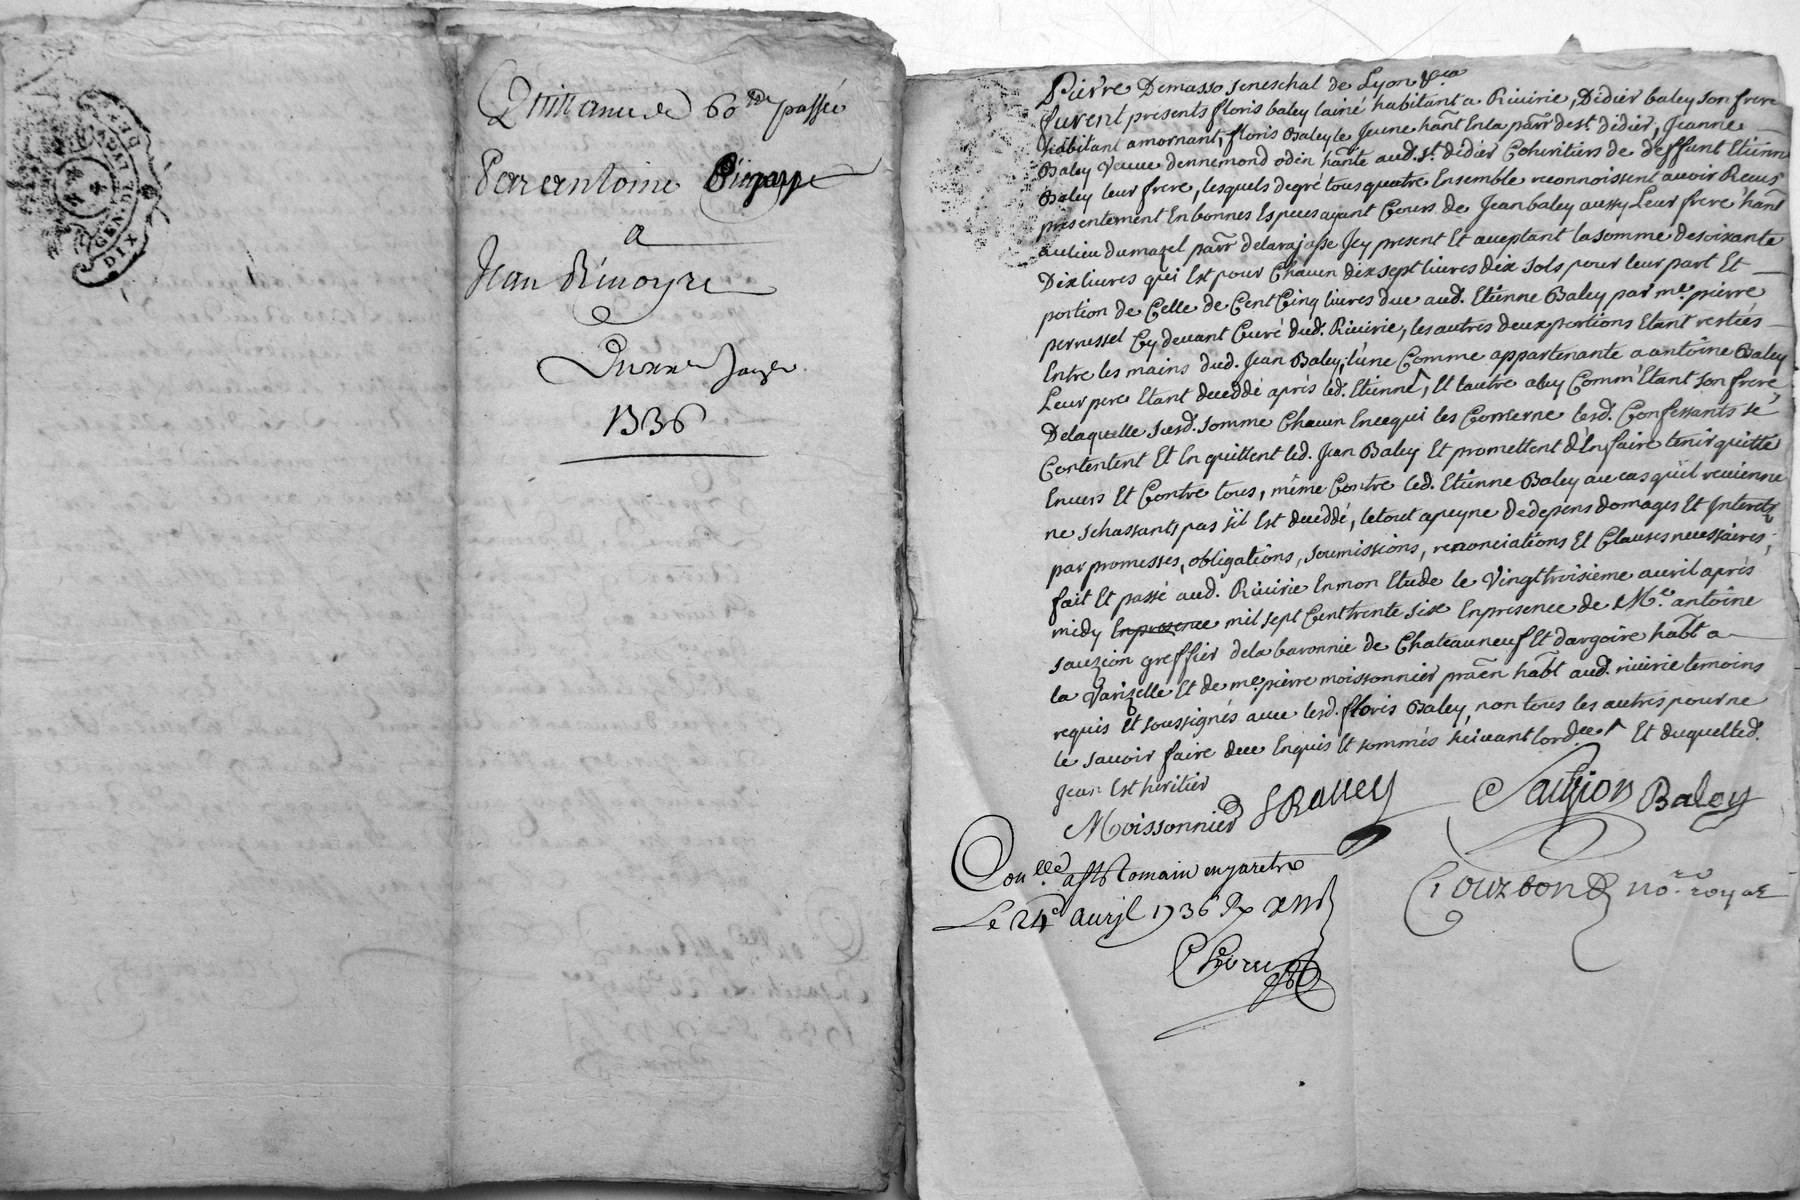 GEN. DE LYON
DIX DEN.
Quittance de 60 ₶ passée
Par antoine
a
Jean Rivoyre
Du xx janv.
1736
Pierre Demasso seneschal de Lyon &ca
furent présents floris baley lainé habitant a Riuirie, Didier baley son frere
habitant a mornant, floris Baley le jeune hant En la parr de st. didier, Jeanne
Baley veuue dennemond odin hante aud. st. didier Coheritiers de deffunt Etienne
Baley leur frere, lesquels de gré tous quatre Ensemble reconnoissent auoir Receus
presentement En bonnes Especes ayant Cours de Jean baley aussy Leur frere hant
au lieu du mazel parr de larajasse Jcy present Et acceptant la somme de soixante
Dix liures qui Est pour Chacun dix sept liures dix sols pour leur part Et
portion de Celle de Cent Cinq liures due aud. Etienne Baley par me. pierre
perrussel Cy deuant Curé dud. Riuirie, les autres deux portions Etant restées
Entre les mains dud. Jean Baley, l'une Comme appartenante a antoine Baley
Leur pere Etant deceddé après led. Etienne ^, Et lautre a luy Comm'Etant son frere
De laquelle susd. somme Chacun En ce qui les Concerne lesd. Confessants se
Contentent Et En quittent led. Jean Baley Et promettent d'En faire tenir quitte
Enuers Et Contre tous, même Contre led. Etienne Baley au cas qu'il reuienne
ne schassants pas s'il Est deceddé, le tout a peyne de depens domages Et Interets
par promesses, obligations, soumissions, renonciations Et Clauses necessaires;
fait Et passé aud. Riuirie En mon Etude le Vingt troisieme auril après
midy En presence mil sept Cent trente six En presence de Me. antoine
sauzion greffier de la baronnie de Chateauneuf Et dargoire habt a
la Varizelle Et de me. pierre moissonnier praen habt aud. riuirie temoins
requis Et soussignés auec lesd. floris Baley, non tous les autres pour ne
le sauoir faire de ce Enquis Et sommés suiuant lord.ce ^ Et duquel led.
Jean Est heritier
Moissonnier f Balley Sauzion Baley
Conllé a st Romain en jaretz
Le 24e auril 1736
Gourbon no.re royal